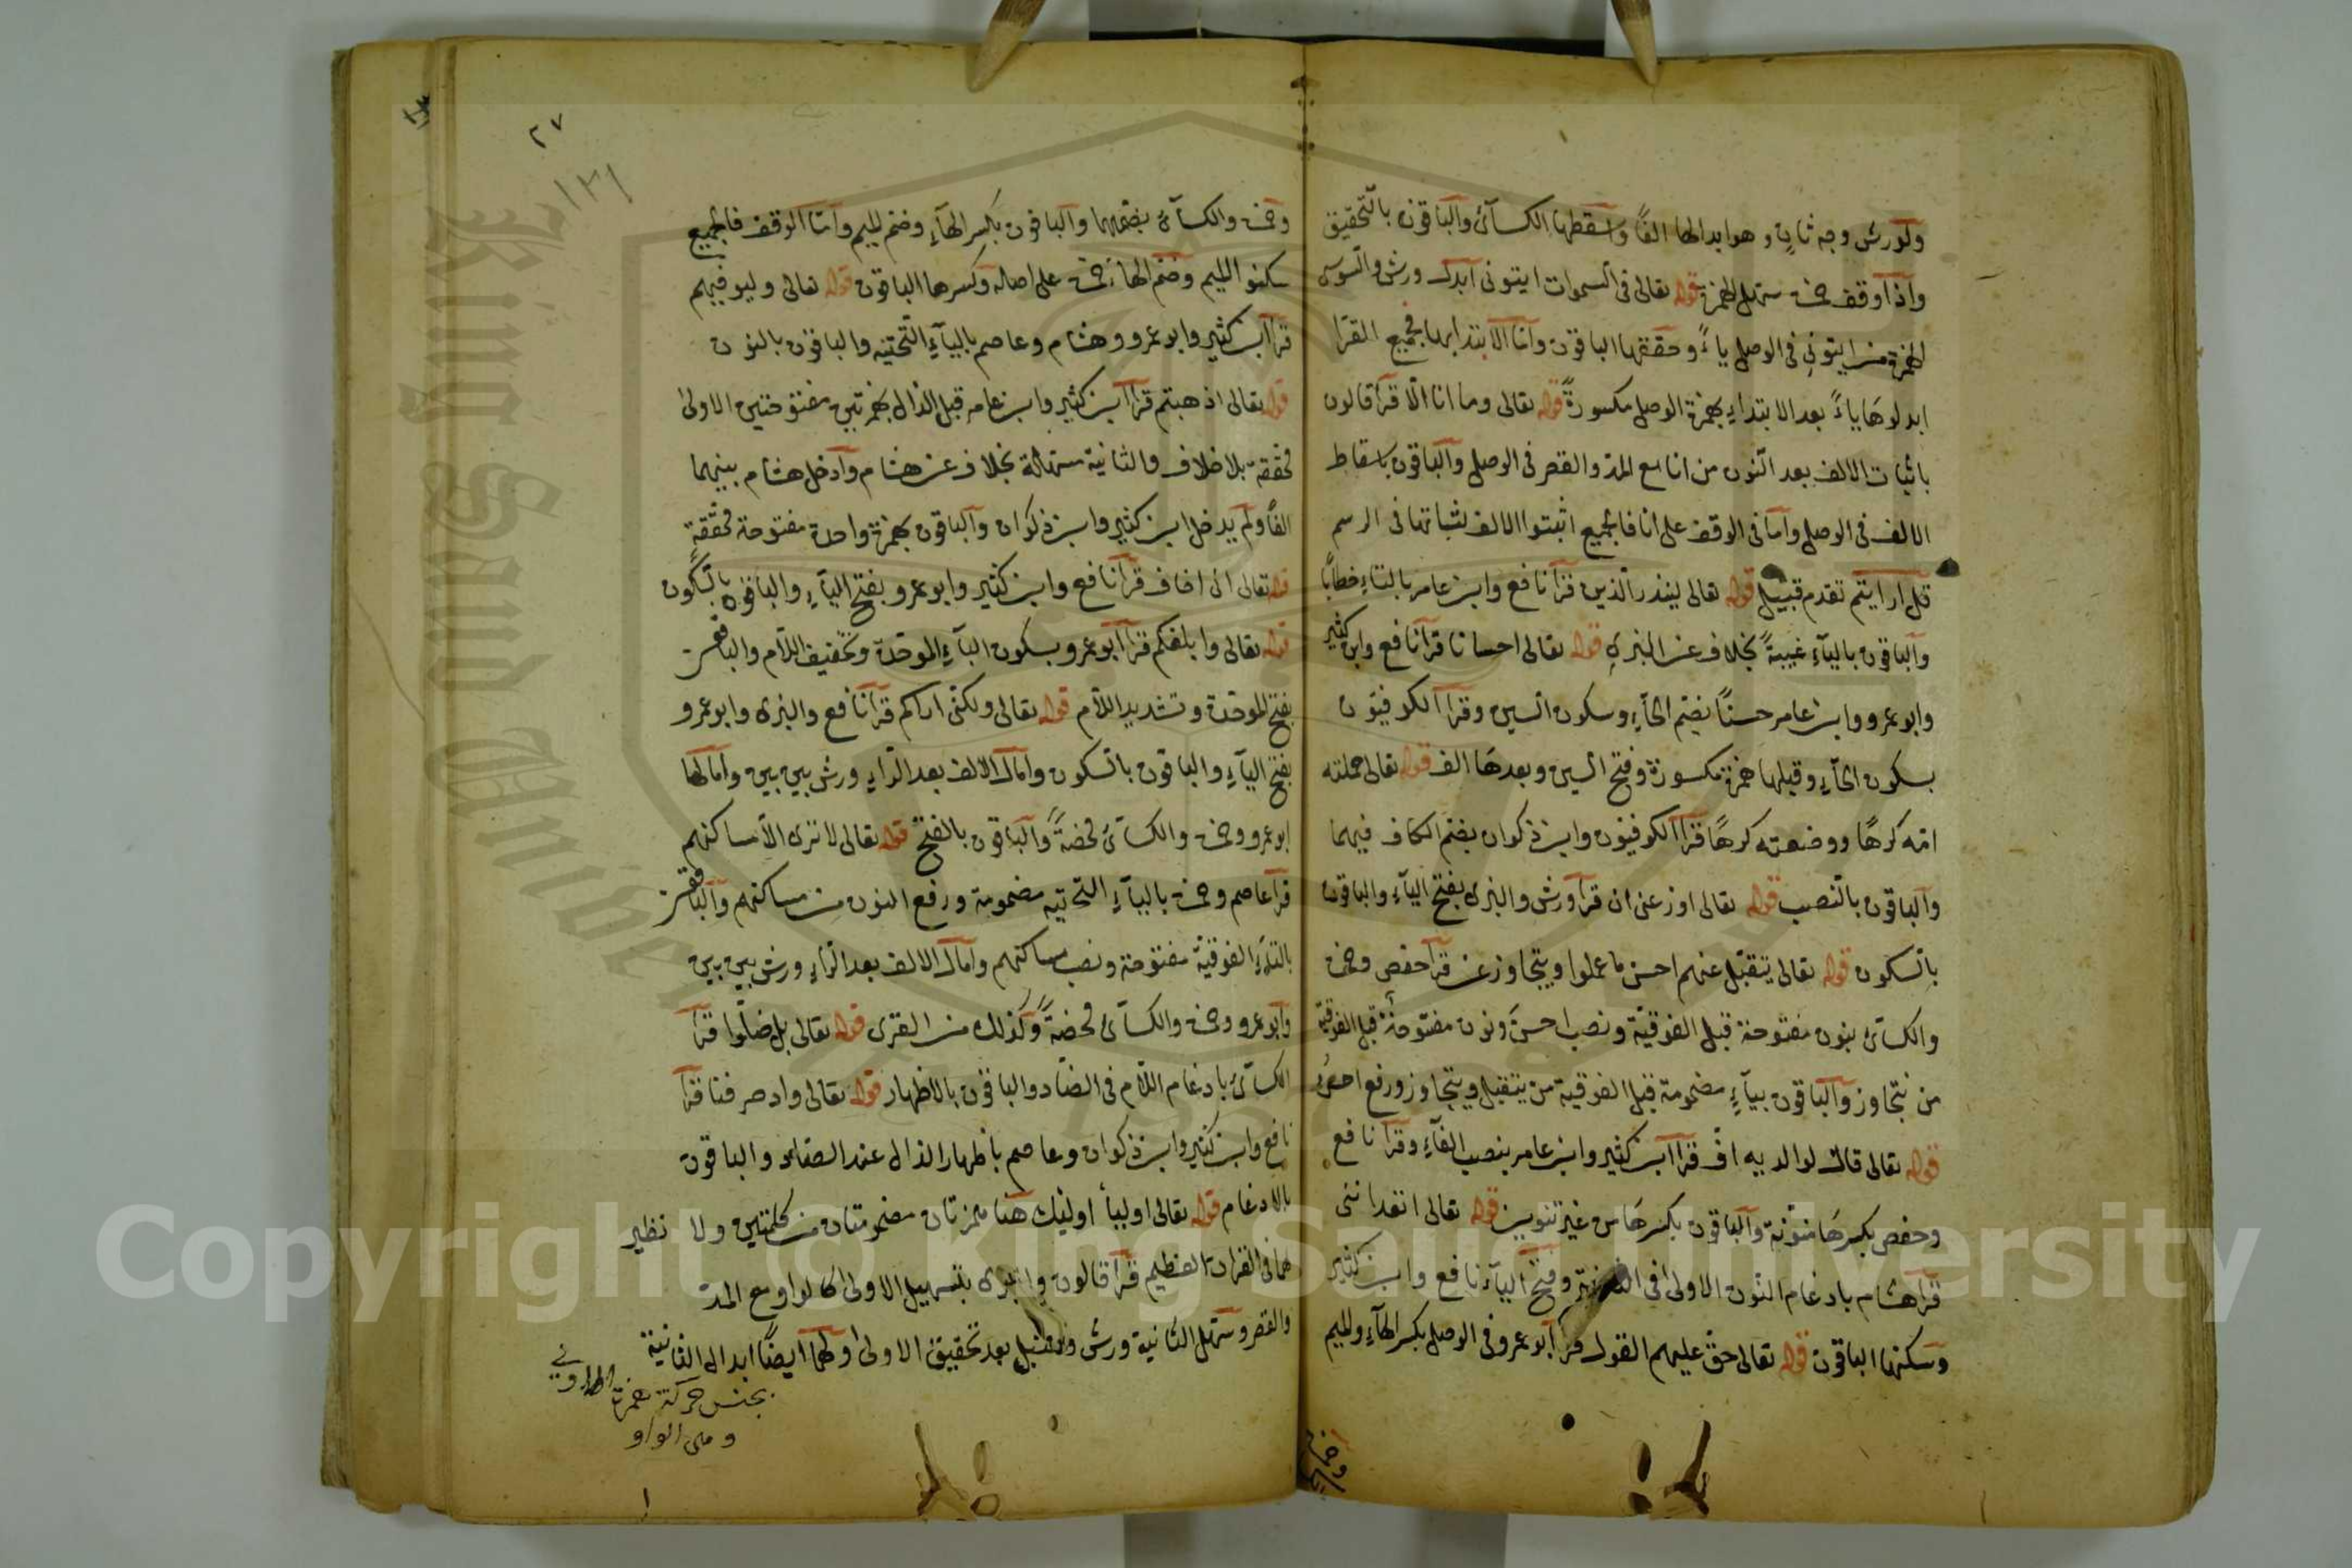 ولورش وجه ثان وهو ابدالها الفًا واسقطها الكسآئ والباقون بالتحقيق
واذا وقف حمزة سهل الهمزة قوله تعالى فى السموات ايتونى ابدل ورش والسوسى
الهمزة من ايتونى فى الوصل ياءً وحققها الباقون واما الابتدا بها فجميع القرا
ابدلوها ياءً بعد الابتداء بهمزة الوصل مكسورةً قوله تعالى وما انا الّا قرأ قالون
باثبات الالف بعد النون من انا مع المد والقصر فى الوصل والباقون باسقاط
الالف فى الوصل واما فى الوقف على انا فالجميع اثبتوا الالف لثباتها فى الرسم
قل ارايتم تقدم قبيل قوله تعالى لينذر الذين قرأ نافع وابن عامر بالتاء خطابًا
والباقون باليآء غيبةً بخلاف عن البزى قوله تعالى احسانا قرأ نافع وابن كثير
وابو عمرو وابن عامر حسنًا بضم الحآء وسكون السين وقرأ الكوفيون
بسكون الحآء وقبلها همزة مكسورة وفتح السين وبعدها الف قوله تعالى حملته
امه كرهًا ووضعته كرهًا قرأ الكوفيون وابن ذكوان بضم الكاف فيهما
والباقون بالنصب قوله تعالى اوزعنى ان قرأ ورش والبزى بفتح اليآء والباقون
بالسكون قوله تعالى يتقبّل عنهم احسن ما عملوا ويتجاوز عن قرأ حفص وحمزة
والكسآئ بنون مفتوحة قبل الفوقيّة ونصب احسنَ ونون مفتوحة قبل الفوقية
من نتجاوز والباقون بيآءٍ مضمومة قبل الفوقية من يتقبل ويتجاوز ورفع احسنُ
قوله تعالى قال لوالديه افّ قرأ ابن كثير وابن عامر بنصب الفآء وقرأ نافع
وحفص بكسرها منوّنة والباقون بكسرها من غير تنوين قوله تعالى اتعداننى
قرأ هشام بادغام النون الاولى فى الثانية وفتح اليآء نافع وابن كثير
وسكنها الباقون قوله تعالى حق عليهم القول قرأ ابو عمرو فى الوصل بكسر الهآء والميم
وحمزة
٢٧
وحمزة والكسآئ بضمهما والباقون بكسر الهآء وضم الميم واما الوقف فالجميع
سكنوا الميم وضم الها حمزة على اصله وكسرها الباقون قوله تعالى وليوفيهم
قرأ ابن كثير وابو عمرو وهشام وعاصم باليآء التحتيه والباقون بالنون
قوله تعالى اذهبتم قرأ ابن كثير وابن عامر قبل الذال بهمزتين مفتوحتين الاولى
محققة بلا خلاف والثانية مسهلة بخلاف عن هشام وادخل هشام بينهما
الفًا ولم يدخل ابن كثير وابن ذكوان والباقون بهمزة واحدة مفتوحة محققةٍ
قوله تعالى انى اخاف قرأ نافع وابن كثير وابو عمرو بفتح اليآء والباقون بالسكون
قوله تعالى وابلغكم قرأ ابو عمرو بسكون البآء الموحدة وتخفيف اللام والباقون
بفتح الموحدة وتشديد اللام قوله تعالى ولكنى اراكم قرأ نافع والبزى وابو عمرو
بفتح اليآء والباقون بالسكون وامال الالف بعد الراء ورش بين بين وامالها
ابو عمرو وحمزة والكسآئ محضةً والباقون بالفتح قوله تعالى لا ترى الّا مساكنهم
قرأ عاصم وحمزة باليآء التحتيه مضمومة ورفع النون من مساكنهم والباقون
بالتاء الفوقية مفتوحة ونصب مساكنهم وامال الالف بعد الراء ورش بين بين
وابو عمرو وحمزة والكسآئ محضةً وكذلك من القرى قوله تعالى بل ضلّوا قرأ
الكسآئ بادغام اللام فى الضاد والباقون بالاظهار قوله تعالى واذ صرفنا قرأ
نافع وابن كثير وابن ذكوان وعاصم باظهار الذال عند الصاد والباقون
بالادغام قوله تعالى اوليأ اوليك هنا همزتان مضمومتان من كلمتين ولا نظير
لهما فى القران العظيم قرأ قالون والبزى بتسهيل الاولى كالواو مع المد
والقصر وسهل الثانية ورش وقنبل بعد تحقيق الاولى ولهما ايضًا ابدال الثانية
بجنس حركة همزة
وهى الواو
Copyright © King Saud University
King Saud University
1957